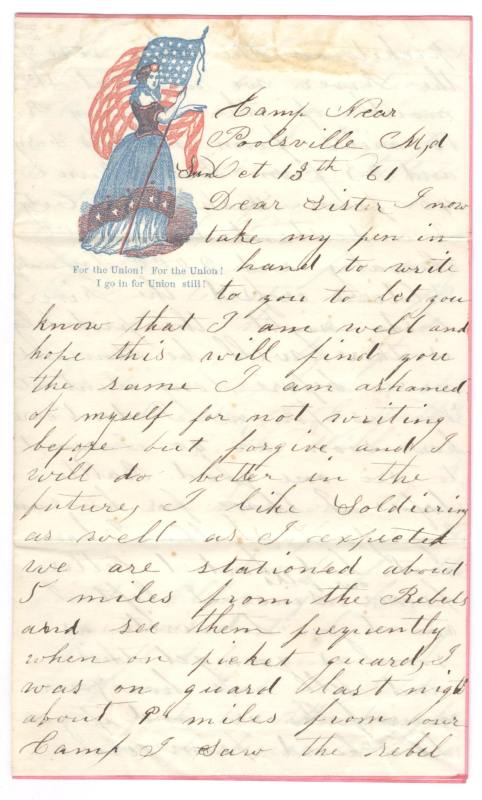 Camp Near
Poolsville M,d
Sun Oct 13th 61
Dear Sister I now
take my pen in
hand to write
to you to let you
For the Union! For the Union!
I go in for Union still!
know that I am well and
hope this will find you
the same I am ashamed
of myself for not writing
before but forgive and I
will do better in the
future, I like Soldiering
as well as I expected
we are stationed about
5 miles from the Rebels
and see them frequently
when on picket guard, I
was on guard last night
about miles from our
Camp I saw the rebel